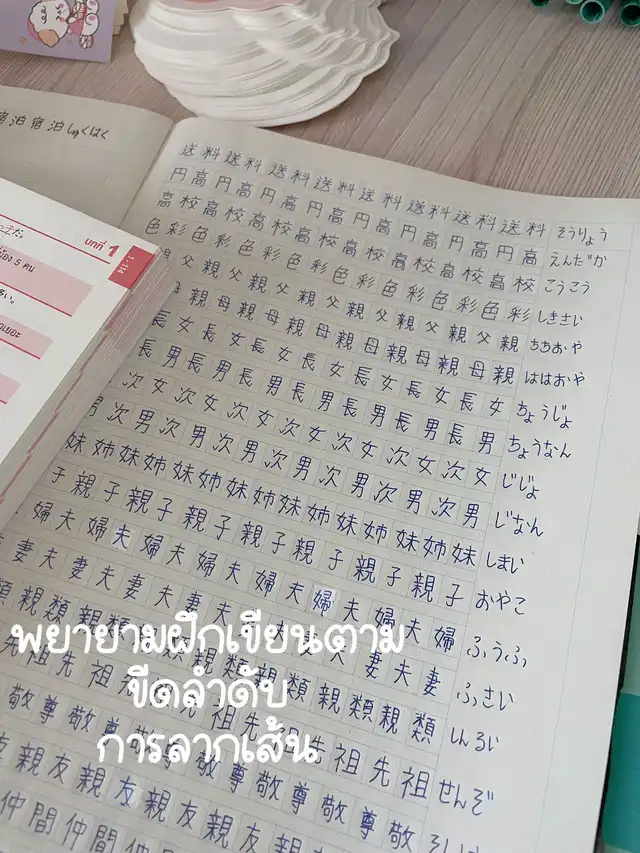 宿泊宿泊 しゅくはく
บทที่ 1
1-14
ของ 5 คน
送料送料送料送料送料送料送料送料 そうりょう
円高円高円高円高円高円高円高円高 えんだか
高校高校高校高校高校高校高校高校 こうこう
色彩色彩色彩色彩色彩色彩色彩色彩 しきさい
父親父親父親父親父親父親父親 ちちおや
親母親母親母親母親母親母親母親 ははおや
長女長女長女長女長女長女長女 ちょうじょ
長男長男長男長男長男長男長男 ちょうなん
次女次女次女次女次女次女次女 じじょ
男次男次男次男次男次男次男次男 じなん
妹姉妹姉妹姉妹姉妹姉妹姉妹 しまい
子親子親子親子親子親子親子親子 おやこ
婦夫婦夫婦夫婦夫婦夫婦夫婦 ふうふ
妻夫妻夫妻夫妻夫妻夫妻夫妻 ふさい
類親類親類親類親類親類親類 しんるい
先祖先祖先祖先祖先祖先祖 せんぞ
敬尊敬尊敬尊敬尊敬尊敬
親友親友親友親友親
仲間仲間仲間仲間仲間
พยายามฝึกเขียนตาม
ขีดลำดับ
การลากเส้น